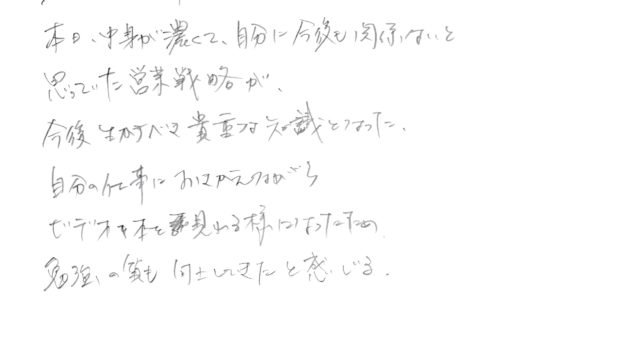 本日、中身が濃くて、自分に今後も関係ないと
思っていた営業戦略が、
今後生かすべき貴重な知識となった。
自分の仕事におきかえながら
ビデオや本を見れる様になったため
勉強の質も向上してきたと感じる。